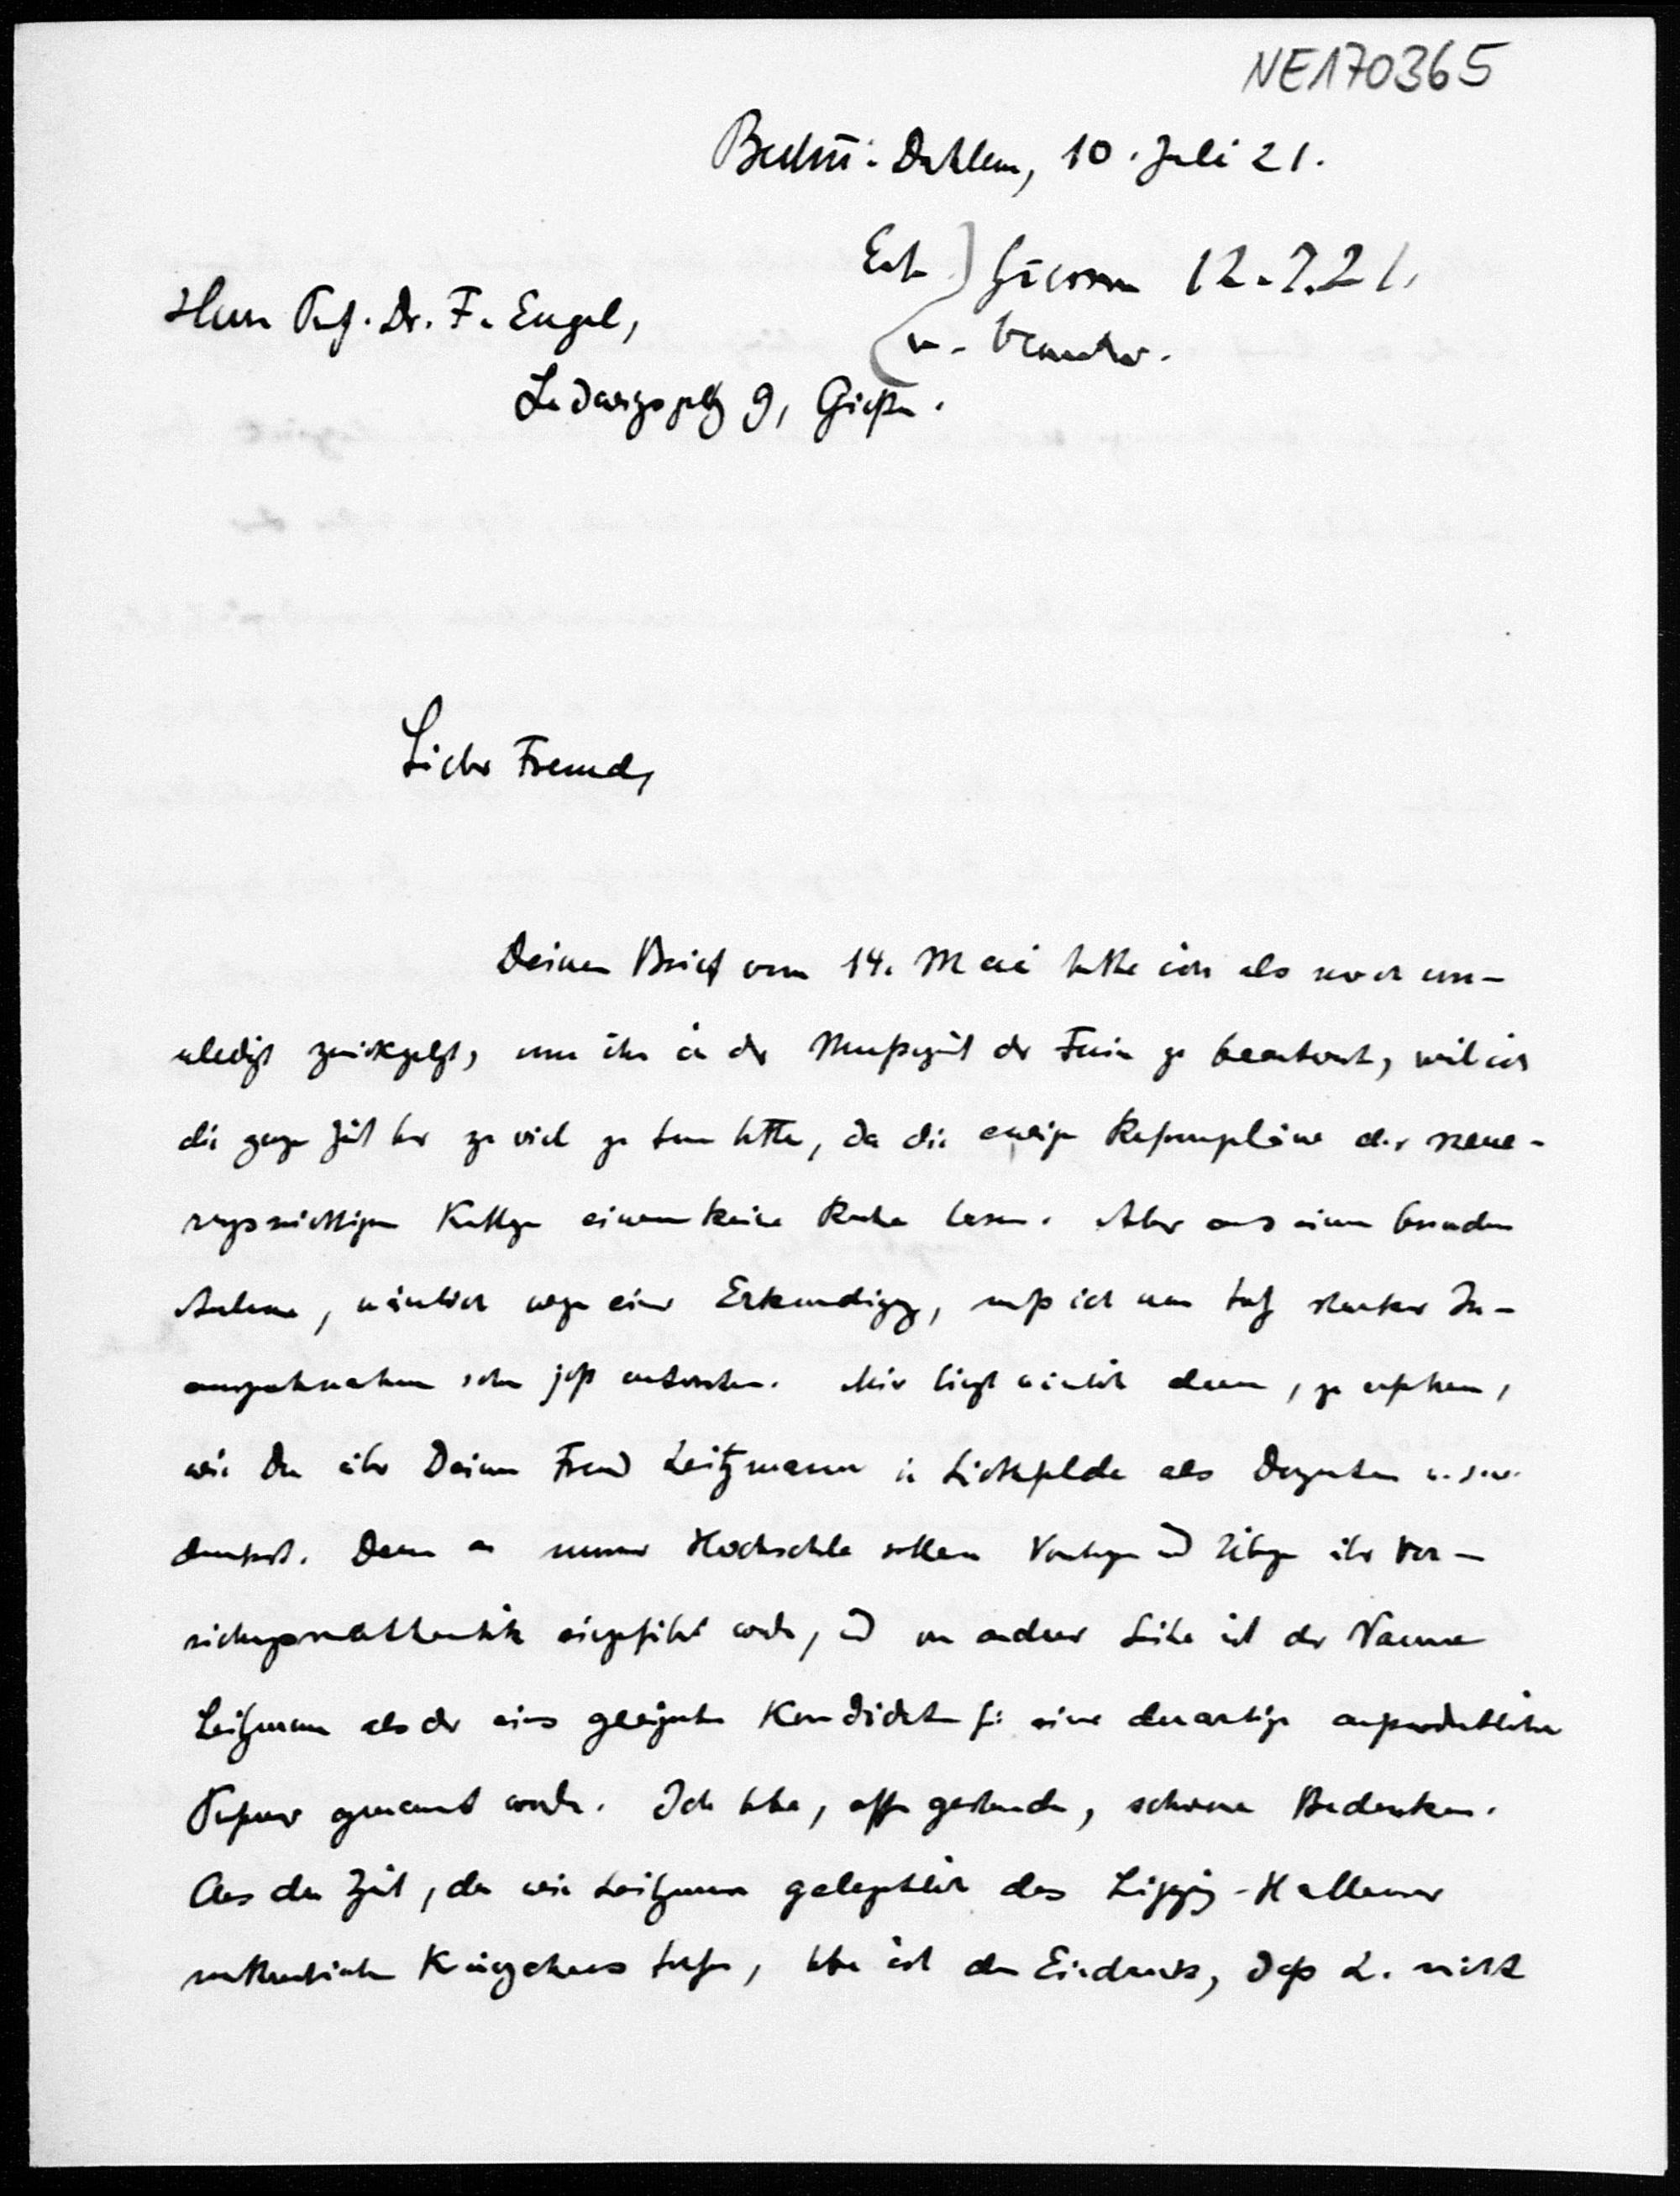 NE170365
Berlin-Dahlem, 10. Juli 21.
Erh. Giessen 12.7.21.
u. beantw.
Herrn Prof. Dr. F. Engel,
Ludwigsplatz 9, Gießen.
Lieber Freund,
Deinen Brief vom 14. Mai hatte ich als noch un-
erledigt zurückgelegt, um ihn in der Mußezeit der Ferien zu beantworten, weil ich
die ganze Zeit her zu viel zu tun hatte, da die ewigen Reformpläne der neue-
rungssüchtigen Kollegen einem keine Ruhe lassen. Aber aus einem besonderen
Anlasse, nämlich wegen einer Erkundigung, muß ich nun trotz starker In-
anspruchnahme schon jetzt antworten. Mir liegt nämlich daran, zu erfahren,
wie Du über Deinen Freund Leitzmann in Lichterfelde als Dozenten u.s.w.
denkst. Denn an unserer Hochschule sollen Vorlesungen und Übungen über Ver-
sicherungsmathematik eingeführt werden, und von anderer Seite ist der Name
Leitzmann als der eines geeigneten Kandidaten für eine derartige außerordentliche
Professur genannt worden. Ich habe, offen gestanden, schwere Bedenken.
Aus der Zeit, da wir Leitzmann gelegentlich des Leipzig-Hallenser
mathematischen Kränzchens trafen, habe ich den Eindruck, daß L. nicht